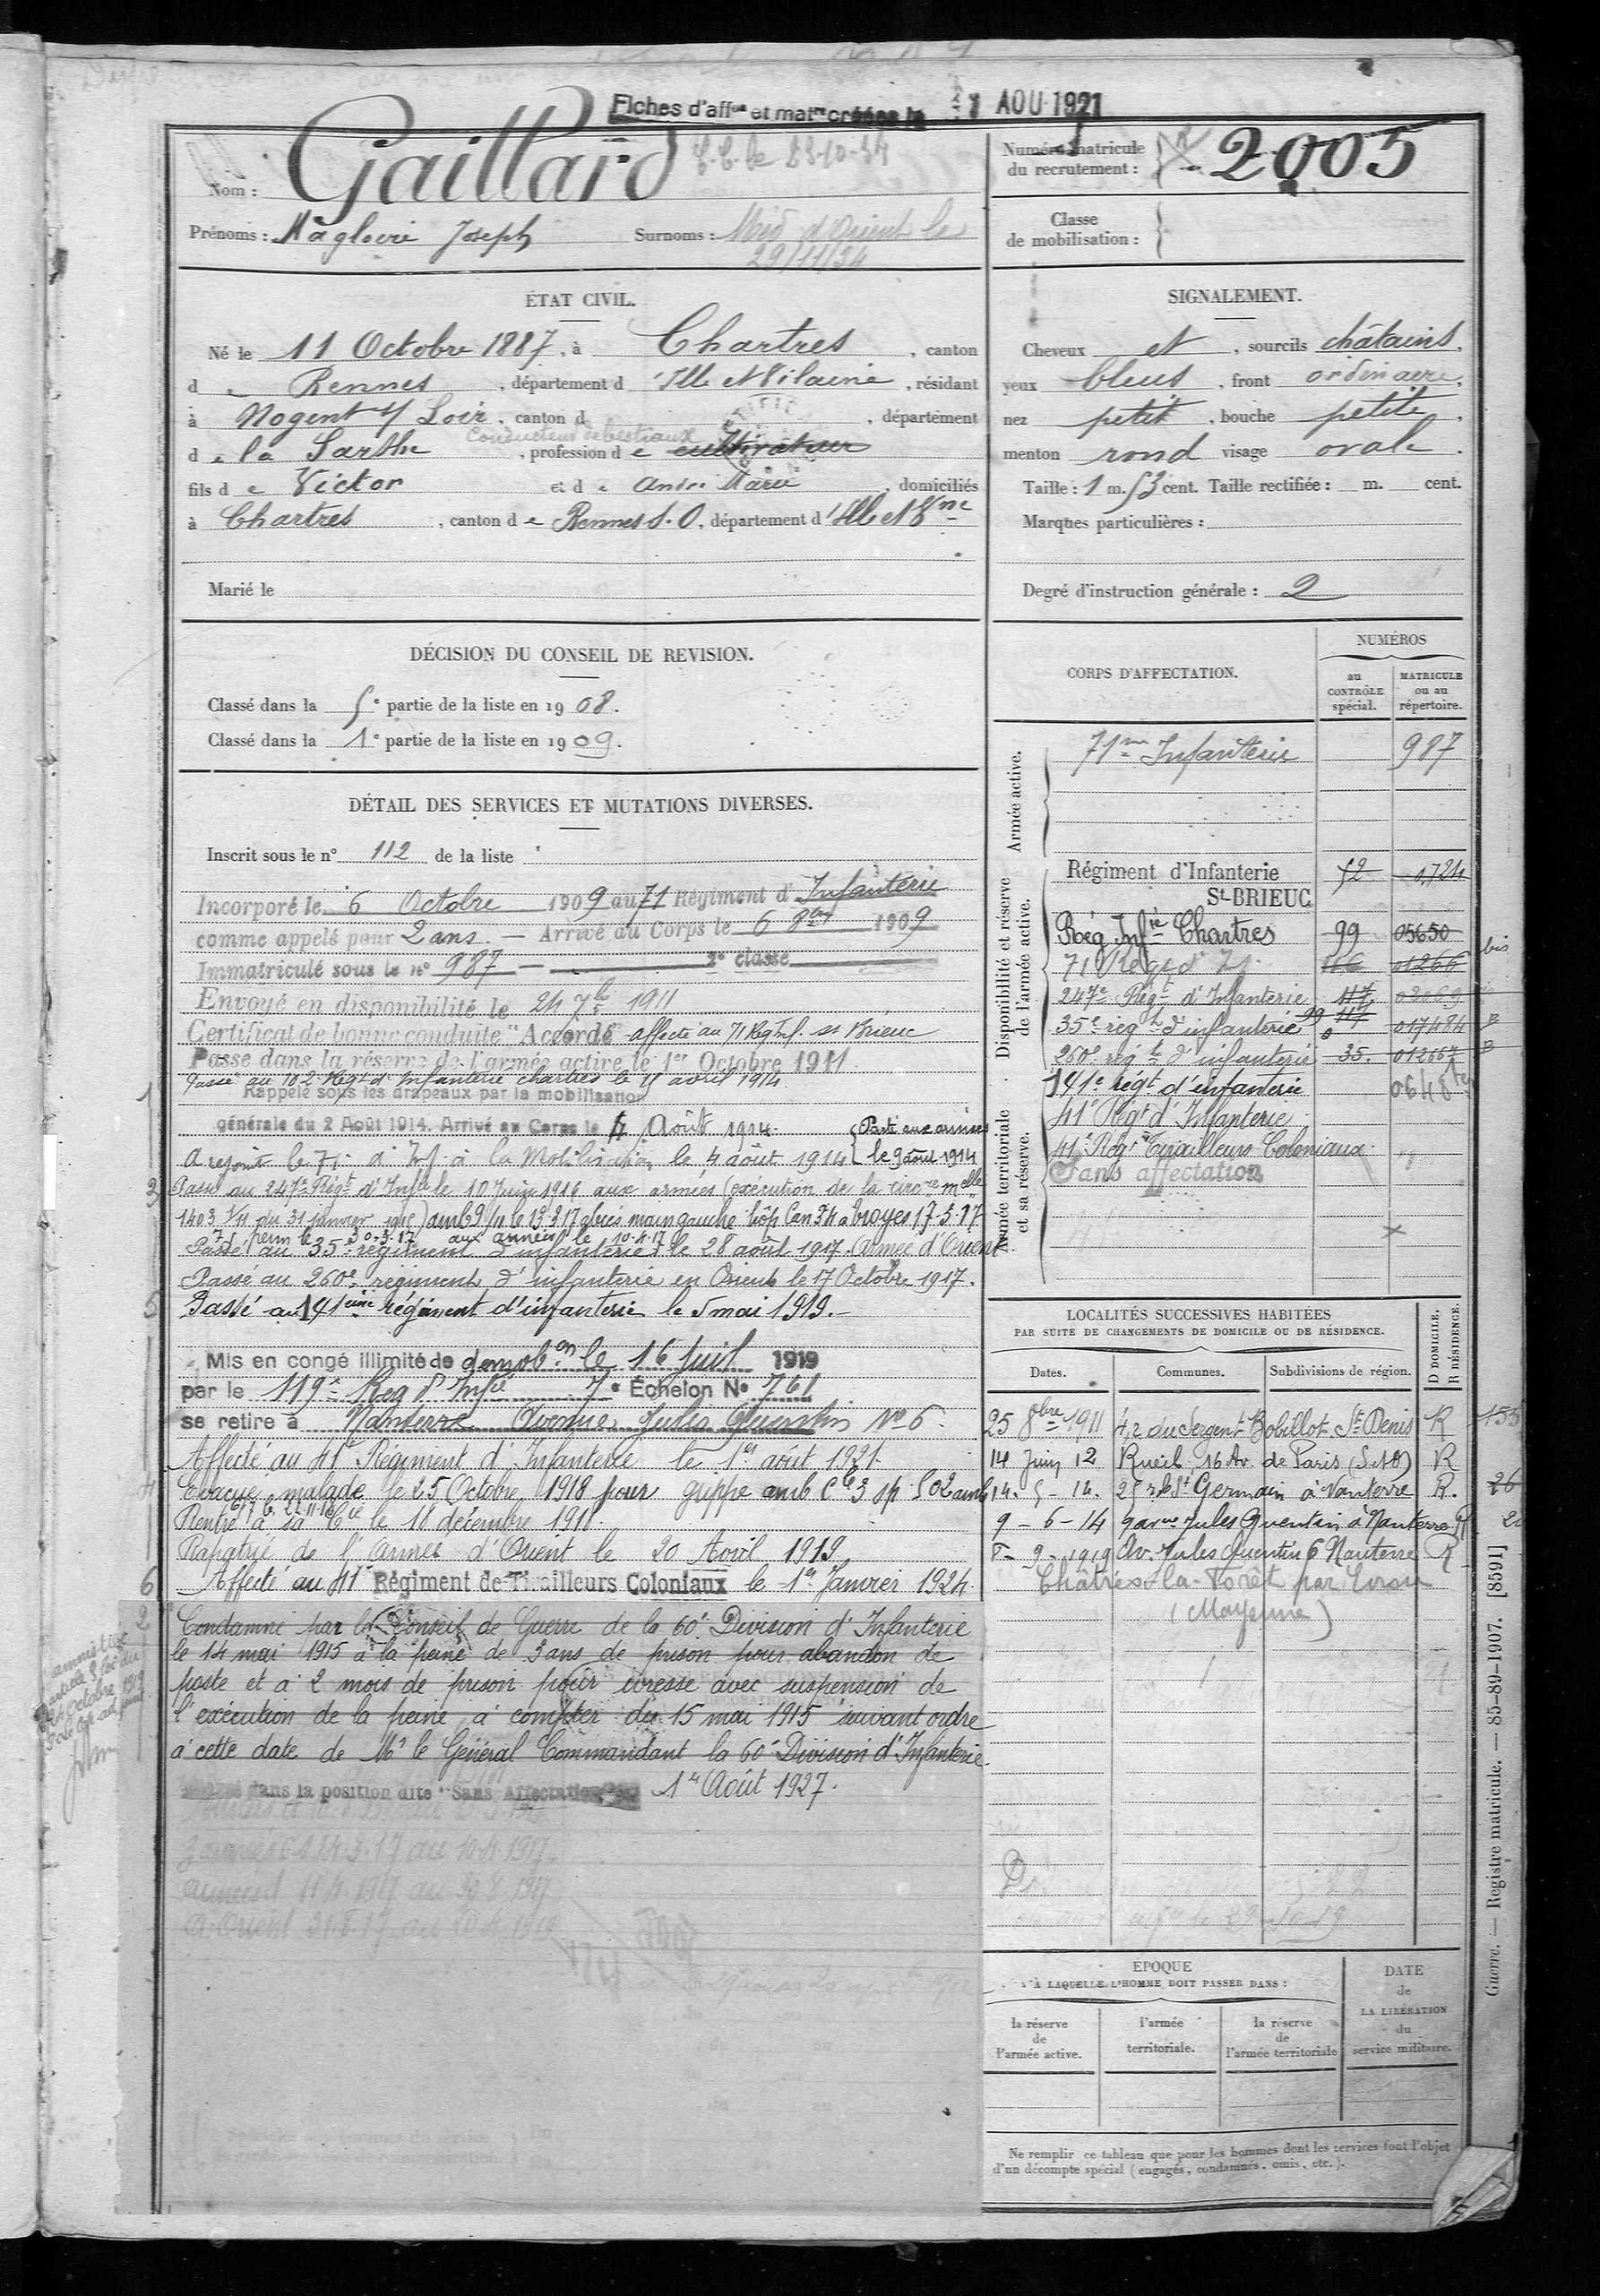 Fiches d'affon et matre créées le 1 AOU 1921
Nom : Gaillard
C.C. le 23-10-34
Prénoms : Magloire Joseph Surnoms : Méd d'Orient le
29/11/34
Numéro matricule
du recrutement : 2005
Classe
de mobilisation :
ÉTAT CIVIL.
Né le 11 Octobre 1887, à Chartres, canton
de Rennes, département d'Ille et Vilaine, résidant
à Nogent s/ Loir, canton d , département
de la Sarthe, profession de cultivateur
conducteur de bestiaux
fils de Victor et de André Marie, domiciliés
à Chartres, canton de Rennes S.O, département d'Ille et Vne
Marié le
SIGNALEMENT.
Cheveux et, sourcils châtains,
yeux bleus, front ordinaire,
nez petit, bouche petite,
menton rond visage ovale.
Taille : 1 m. 53 cent. Taille rectifiée : m. cent.
Marques particulières :
Degré d'instruction générale : 2
DÉCISION DU CONSEIL DE REVISION.
Classé dans la 5e partie de la liste en 1908.
Classé dans la 1e partie de la liste en 1909.
DÉTAIL DES SERVICES ET MUTATIONS DIVERSES.
Inscrit sous le n° 112 de la liste
Incorporé le 6 Octobre 1909 au 71 Régiment d'Infanterie
comme appelé pour 2 ans. — Arrivé au Corps le 6 8bre 1909
Immatriculé sous le n° 987 — 2e classe
Envoyé en disponibilité le 24 7bre 1911
Certificat de bonne conduite "Accordé" affecté au 71 Reg Inf. St Brieuc
Passé dans la réserve de l'armée active le 1er Octobre 1911
Passé au 102e Régt d'Infanterie Chartres le 15 avril 1914
Rappelé sous les drapeaux par la mobilisation
générale du 2 Août 1914. Arrivé au Corps le 4 Août 1914.
Parti aux armées
le 9 août 1914
A rejoint le 71e d'Inf à la Mobilisation le 4 août 1914
Passé au 247e Régt d'Infie le 10 Juin 1916 aux armées (exécution de la circre melle
1403 1/11 du 31 janvier 1916) amb 9/11 le 13.3.17 main gauche hôp Can 34 à Troyes 17.3.17
perm le 30-3-17 aux armées le 10.4.17
Passé au 35e régiment d'infanterie le 28 août 1917. (Armée d'Orient
Passé au 260e régiment d'infanterie en Orient le 17 Octobre 1917.
Passé au 141ème régiment d'infanterie le 5 mai 1919.
Mis en congé illimité de démobon le 16 Juil 1919
par le 119e Reg d'Infie 7e Échelon N° 761
se retire à Nanterre Avenue Jules Quentin N° 6.
Affecté au 41e Régiment d'Infanterie le 1er août 1921.
Evacué malade le 25 Octobre 1918 pour grippe amb Cle 3 sp 502 amb
6/7 le 22-11-18
Rentré à sa Cie le 18 décembre 1918.
Rapatrié de l'Armée d'Orient le 20 Avril 1919
Affecté au 41e Régiment de Tirailleurs Coloniaux le 1er Janvier 1924.
Condamné par le Conseil de Guerre de la 60e Division d'Infanterie
le 14 mai 1915 à la peine de 3 ans de prison pour abandon de
poste et à 2 mois de prison pour ivresse avec suspension de
l'exécution de la peine à compter du 15 mai 1915 suivant ordre
à cette date de Mr le Général Commandant la 60e Division d'Infanterie.
dans la position dite "Sans Affectation" 1er Août 1927.
amnistié
article 8 loi du
24 octobre 1919
armées 11.4.1917 au 30.8.1917
A. Orient 31.8.17 au 20.4.1919
1
3
5
4
6
2
CORPS D'AFFECTATION.
NUMÉROS
au
CONTRÔLE
spécial.
MATRICULE
ou au
répertoire.
Armée active.
71me Infanterie 987
Disponibilité et réserve
de l'armée active.
Régiment d'Infanterie 52 1724
St-BRIEUC
Rég Infie Chartres 99 05650
71 Régt d'Inf. 116 01266 bis
247e Régt d'Infanterie 117 02069
35e régt d'infanterie 017484 B
260e régt d'infanterie 35. 012667 B
Armée territoriale
et sa réserve.
141e régt d'infanterie 0648 ter
41e Régt d'Infanterie
41e Régt Tirailleurs Coloniaux
Sans affectation
LOCALITÉS SUCCESSIVES HABITÉES
PAR SUITE DE CHANGEMENTS DE DOMICILE OU DE RÉSIDENCE.
D DOMICILE.
R RÉSIDENCE.
Dates. Communes. Subdivisions de région.
25 8bre 1911 42 du Sergent Bobillot St Denis R 155
14 Juin 12 Rueil 16 Av. de Paris (S&O) R
14. 5 - 14. 25 r de St Germain à Nanterre R. 26
9 - 6 - 14 9 avue Jules Quentin à Nanterre R
5 - 9 - 1919 Av. Jules Quentin 6 Nanterre R
Châtres-la-Forêt par Evron
(Mayenne)
ÉPOQUE
À LAQUELLE L'HOMME DOIT PASSER DANS :
la réserve
de
l'armée active.
l'armée
territoriale.
la réserve
de
l'armée territoriale
DATE
de
LA LIBÉRATION
du
service militaire.
Ne remplir ce tableau que pour les hommes dont les services font l'objet
d'un décompte spécial (engagés, condamnés, omis, etc.).
Guerre. — Registre matricule. — 85-89-1907. [8591]